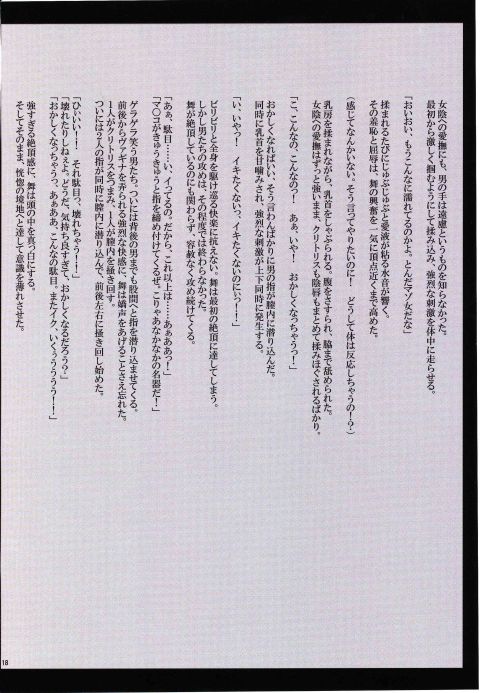 女陰への愛撫にも、男の手は遠慮というものを知らなかった。
最初から激しく掴むようにして揉み込み、強烈な刺激を体中に走らせる。
「おいおい、もうこんなに濡れてるのかよ。とんだマゾ女だな」
揉まれるたびにじゅぶじゅぶと愛液が粘る水音が響く。
その羞恥と屈辱は、舞の興奮を一気に頂点近くまで高めた。
(感じてなんかいない。そう言ってやりたいのに! どうして体は反応しちゃうの!?)
乳房を揉まれながら、乳首をしゃぶられる。腹をさすられ、脇まで舐められた。
女陰への愛撫はずっと強いまま、クリトリスも陰唇もまとめて揉みほぐされるばかり。
「こ、こんなの、こんなのっ! あぁ、いや! おかしくなっちゃうっ!」
おかしくなればいい、そう言わんばかりに男の指が膣内に潜り込んだ。
同時に乳首を甘噛みされ、強烈な刺激が上下同時に発生する。
「い、いやっ! イキたくないっ、イキたくないのにぃ!!」
ビリビリと全身を駆け巡る快楽に抗えない。舞は最初の絶頂に達してしまう。
しかし男たちの攻めは、その程度では終わらなかった。
舞が絶頂しているのにも関わらず、容赦なく攻め続けてくる。
「あぁ、駄目……い、イってるの。だから、これ以上は……あぁああっ!」
「マ〇コがきゅうきゅうと指を締め付けてくるぜ。こりゃあなかなかの名器だ!」
ゲラゲラ笑う男たち。ついには背後の男までも股間へと指を潜り込ませてくる。
前後からヴァギナを弄られる強烈な快感に、舞は嬌声をあげることさえ忘れた。
1人がクリトリスをつまみ、1人が膣内を掻き回す。
ついには2人の指が同時に膣内に潜り込んで、前後左右に掻き回し始めた。
「ひぃいい!! それ駄目っ、壊れちゃう!!」
「壊れたりしねぇよ。どうだ、気持ち良すぎて、おかしくなるだろう?」
「おかしくなっちゃうっ、あぁああ、こんなの駄目。またイク、いくぅううう!!」
強すぎる絶頂感に、舞は頭の中を真っ白にする。
そしてそのまま、恍惚の境地へと達して意識を薄れさせた。
18